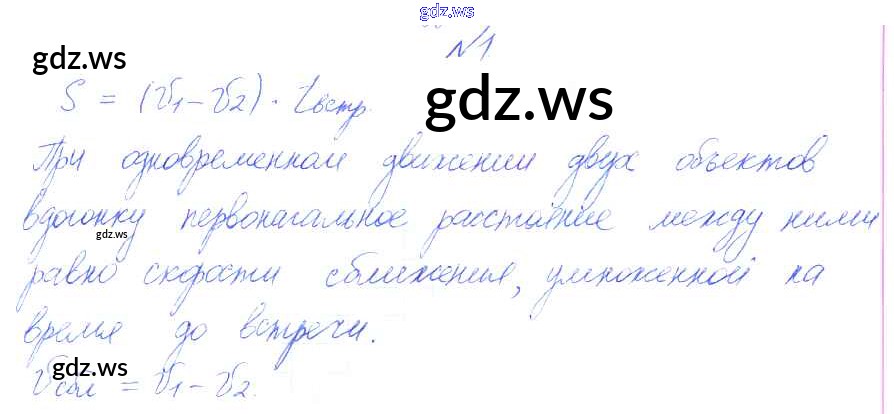 gdz.ws
№1
gdz.ws
S = (v1 - v2) · tвстр.
gdz.ws
При одновременном движении двух объектов
вдогонку первоначальное расстояние между ними
gdz.ws
равно скорости сближения, умноженной на
время до встречи.
gdz.ws
vсбл = v1 - v2.